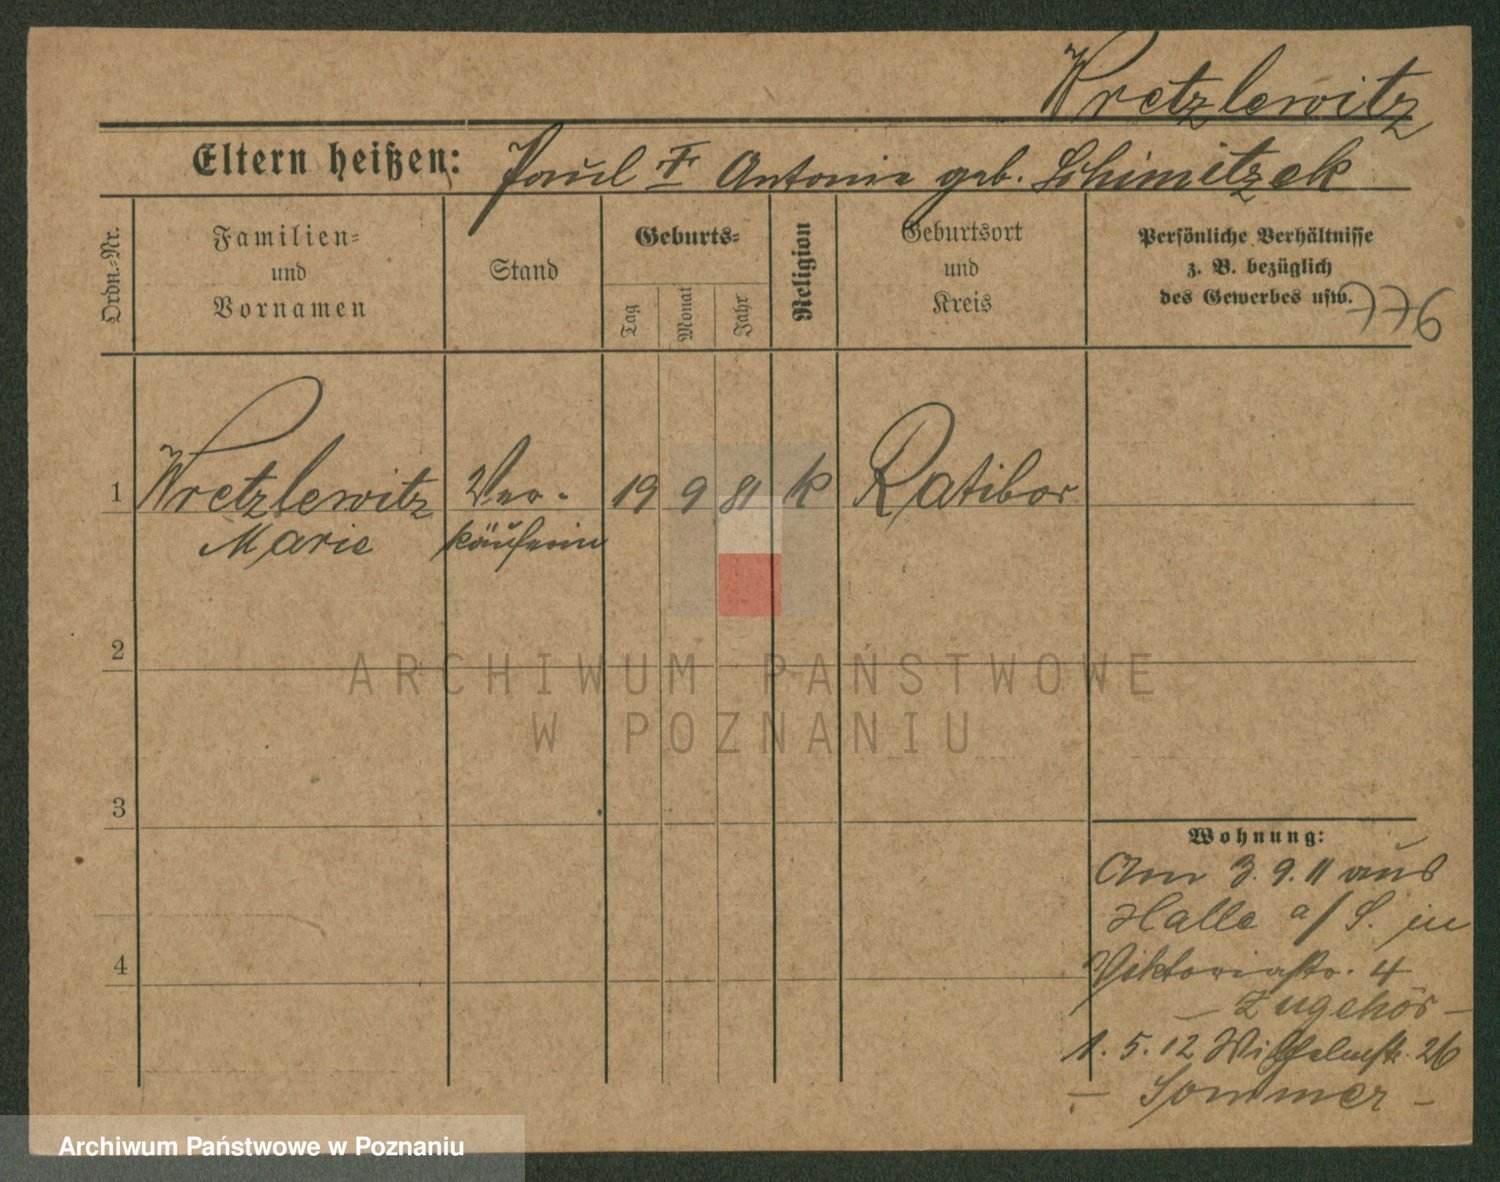 Wretzlewitz
Eltern heißen: Paul † Antonie geb. Schimitzek
Ordn.-Nr.
Familien-
und
Vornamen
Stand
Geburts-
Tag
Monat
Jahr
Religion
Geburtsort
und
Kreis
Persönliche Verhältnisse
z. B. bezüglich
des Gewerbes usw.
776
1 Wretzlewitz Ver- 19 9 81 k Ratibor
Marie käuferin
2
3
4
Wohnung:
Am 3.9.11 aus
Halle a/S. in
Viktoriastr. 4
- Zugehör -
1.5.12 Wilhelmstr. 26
- Sommer -
ARCHIWUM PAŃSTWOWE
W POZNANIU
Archiwum Państwowe w Poznaniu